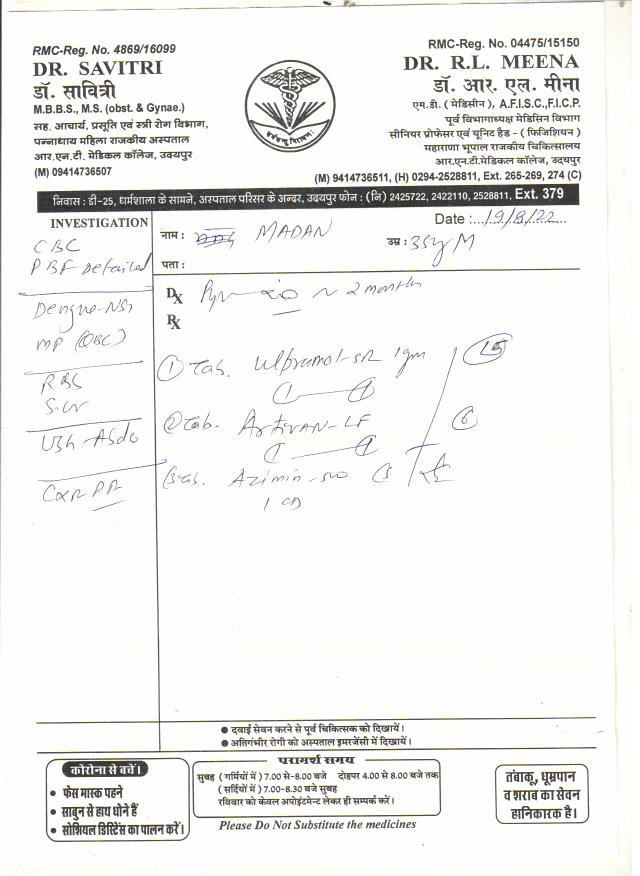 RMC-Reg. No. 4869/16099
DR. SAVITRI
डॉ. सावित्री
M.B.B.S., M.S. (obst. & Gynae.)
सह. आचार्य, प्रसूति एवं स्त्री रोग विभाग,
पन्नाधाय महिला राजकीय अस्पताल
आर.एन.टी. मेडिकल कॉलेज, उदयपुर
(M) 09414736507
RMC-Reg. No. 04475/15150
DR. R.L. MEENA
डॉ. आर. एल. मीना
एम.डी. ( मेडिसीन ), A.F.I.S.C.,F.I.C.P.
पूर्व विभागाध्यक्ष मेडिसिन विभाग
सीनियर प्रोफेसर एवं यूनिट हैड - ( फिजिशियन )
महाराणा भूपाल राजकीय चिकित्सालय
आर.एन.टी.मेडिकल कॉलेज, उदयपुर
(M) 9414736511, (H) 0294-2528811, Ext. 265-269, 274 (C)
निवास : डी-25, धर्मशाला के सामने, अस्पताल परिसर के अन्दर, उदयपुर फोन : (नि) 2425722, 2422110, 2528811, Ext. 379
INVESTIGATION
CBC
PBF Detailed
Dengue-NS1
MP (QBC)
RBS
S.cr
USG
CXR PA
Date : 19/8/22
नाम : MADAN
उम्र : 35y M
पता :
Dx ~ 2 months
Rx
① Tab. Ulpramol-SR 1gm 15
1 — 1
② Tab. Artivan-LF 6
1 — 1
③ Tab. Azimin-500
1 OD
● दवाई सेवन करने से पूर्व चिकित्सक को दिखायें।
● अतिगंभीर रोगी को अस्पताल इमरजेंसी में दिखायें।
कोरोना से बचें।
● फेस मास्क पहने
● साबुन से हाथ धोने हैं
● सोशियल डिस्टिेंस का पालन करें।
परामर्श समय
सुबह ( गर्मियों में ) 7.00 से-8.00 बजे दोहपर 4.00 से 8.00 बजे तक
( सर्दियों में ) 7.00-8.30 बजे सुबह
रविवार को केवल अपोइंटमेन्ट लेकर ही सम्पर्क करें।
Please Do Not Substitute the medicines
तंबाकू, धूम्रपान
व शराब का सेवन
हानिकारक है।